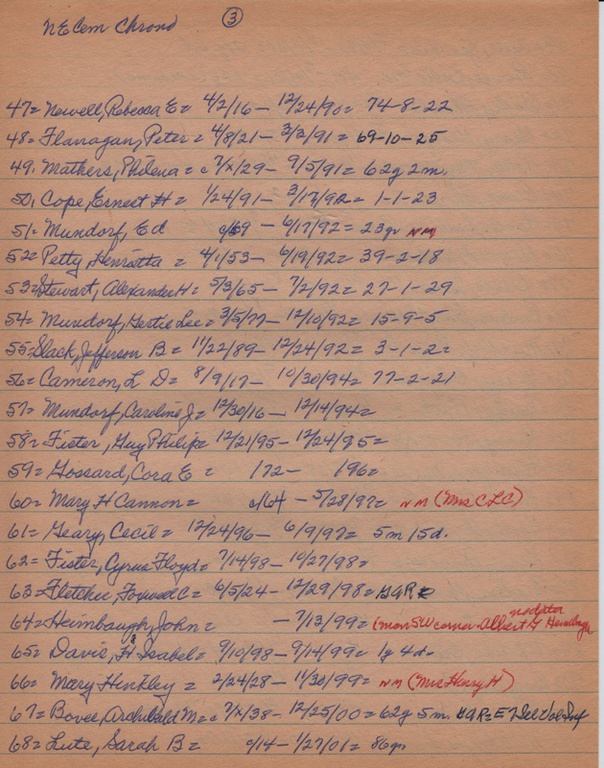 NE Cem Chrono ③
47= Newell, Rebecca E = 4/2/16 – 12/24/90 = 74-8-22
48= Flanagan, Peter = 4/8/21 – 3/3/91 = 69-10-25
49. Mathers, Philena = c 7/x/29 – 9/5/91 = 62y 2m.
50, Cope, Ernest H = 1/24/91 – 3/17/92 = 1-1-23
51= Mundorf, Ed c/69 – 6/17/92 = 23yr NM
52= Petty, Henrietta = 4/1/53 – 6/19/92 = 39-2-18
53= Stewart, Alexander H = 5/3/65 – 7/2/92 = 27-1-29
54= Mundorf, Gertie Lee = 3/5/77 – 12/10/92 = 15-9-5
55= Slack, Jefferson B = 11/22/89 – 12/24/92 = 3-1-2=
56= Cameron, L D = 8/9/17 – 10/30/94 = 77-2-21
57= Mundorf, Caroline J = 12/30/16 – 12/14/94=
58= Fister, Guy Philip = 12/21/95 – 12/24/95=
59= Gossard, Cora E = 172 – 196=
60= Mary H Cannon = c/64 – 5/28/97= NM (Mrs CLC)
61= Geary, Cecil = 12/24/96 – 6/9/97= 5m 15d.
62= Fister, Cyrus Floyd = 7/14/98 – 10/27/98=
63= Fletcher, C = 6/5/24 – 12/29/98 = GAR
64= Heimbaugh, John = – 7/13/99 = (mon SW corner - Albert G Heimbaugh no data
65= Davis, H & Isabel = 9/10/98 – 9/14/99= 1y 4d.
66= Mary Hinkley = 2/24/28 – 11/30/99 = NM (Mrs Henry H)
67= Bovee, Archibald M = c 7/x/38 – 12/25/00 = 62y 5m. GAR= E 7 Del Vol Inf
68= Lute, Sarah B = c/14 – 1/27/01 = 86yr